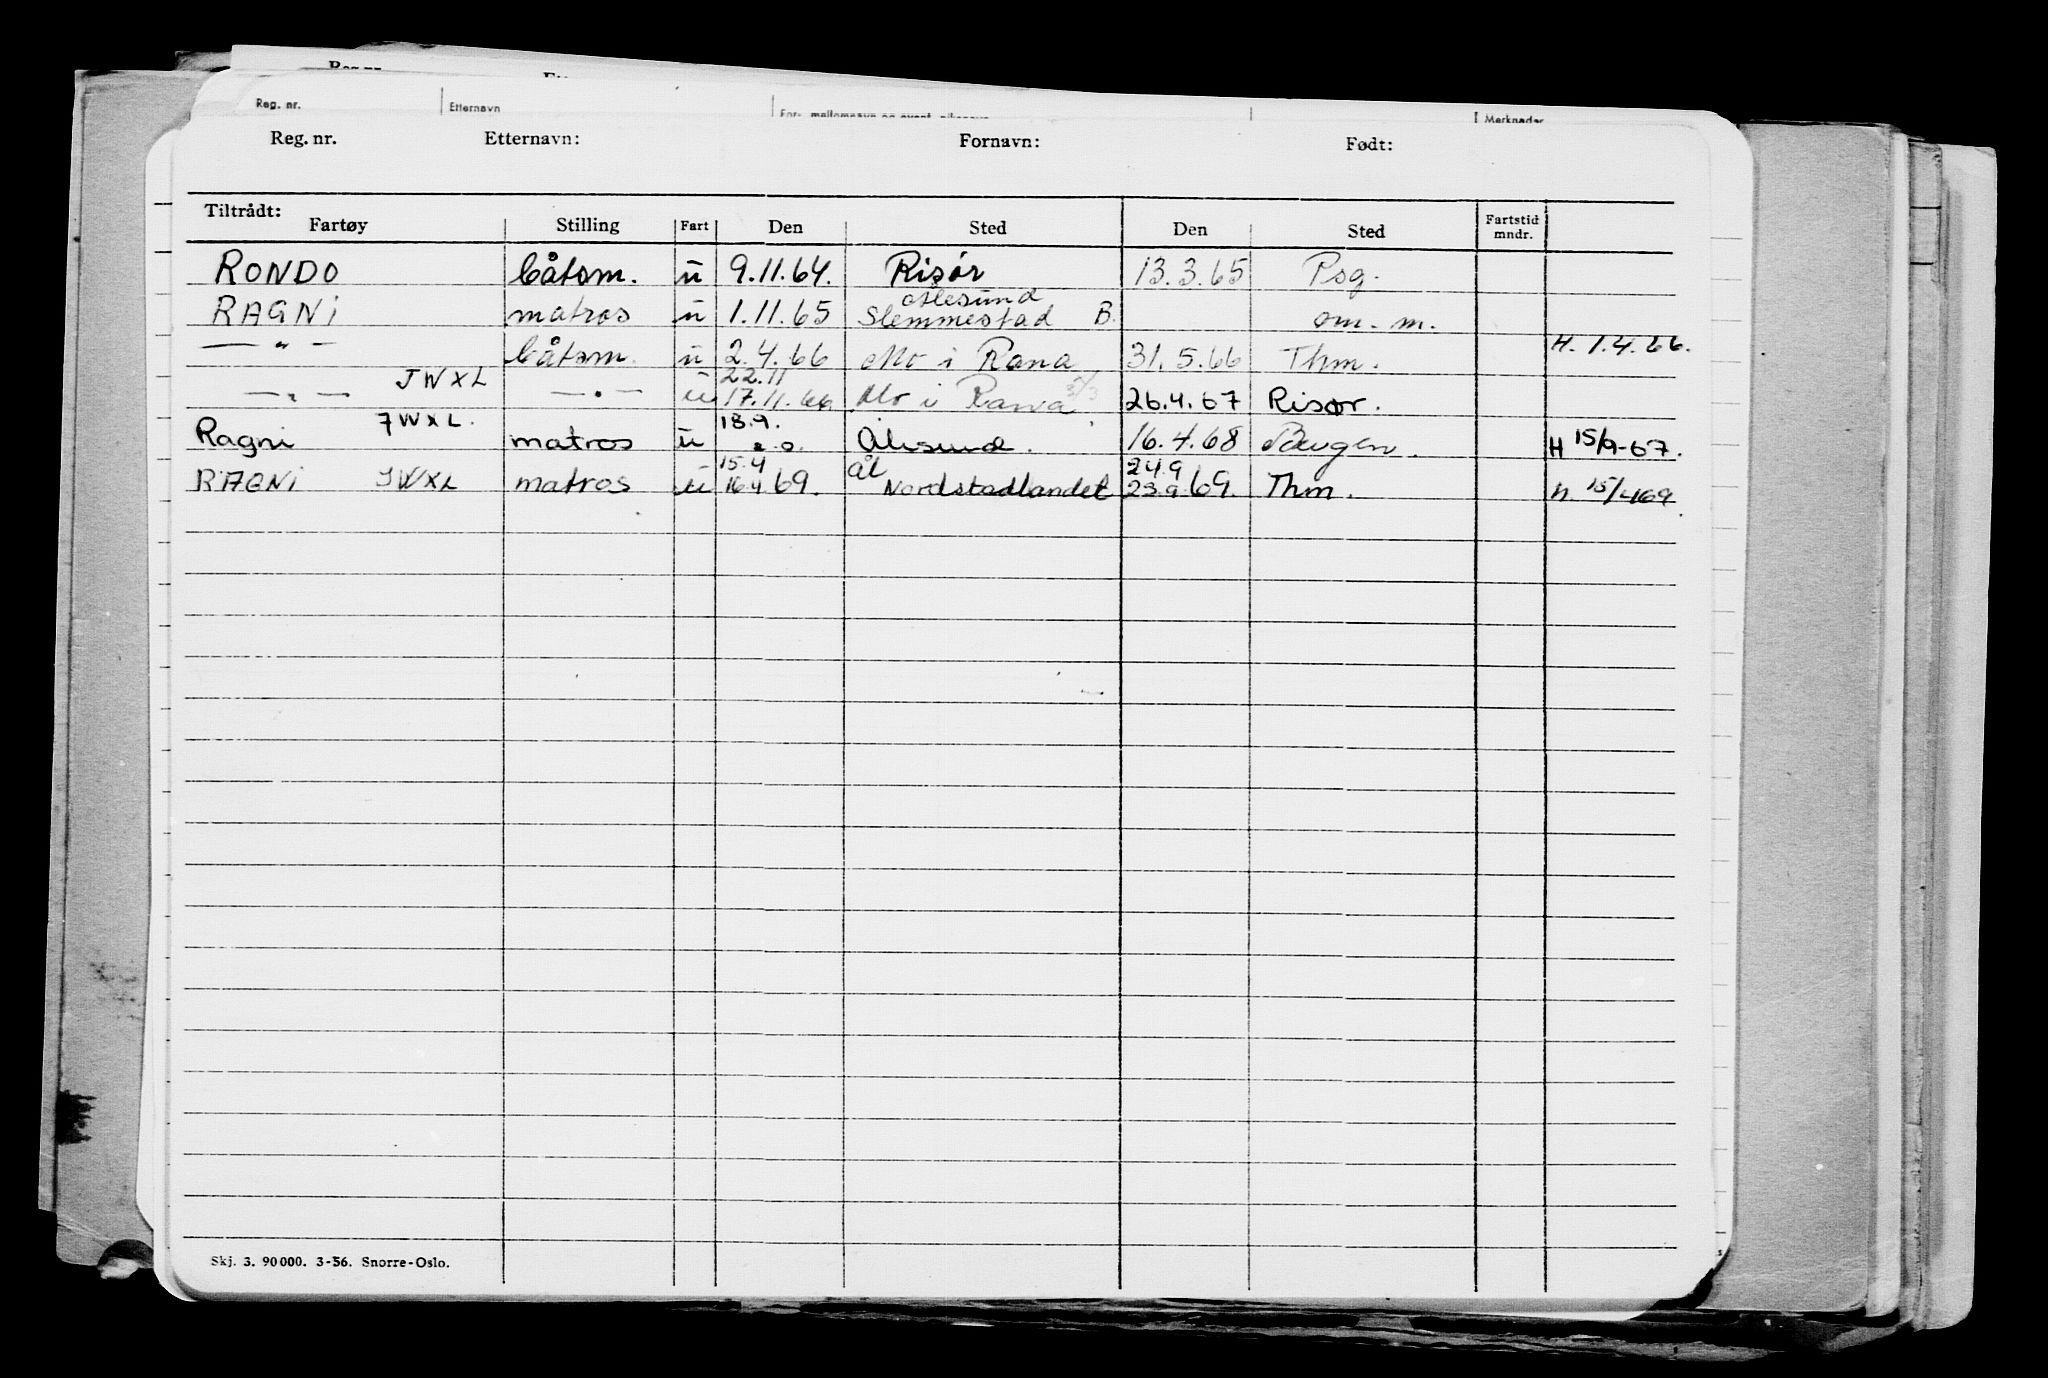 Reg. nr. Etternavn Merknader
Reg. nr. Etternavn: Fornavn: Født:
Tiltrådt:
Fartøy Stilling Fart Den Sted Den Sted Fartstid mndr.
RONDO båtsm. u 9.11.64. Risør 13.3.65 Psg.
Ålesund
RAGNI matros u 1.11.65 Slemmestad B. om. m.
— " — båtsm. u 2.4.66 Mo i Rana 31.5.66 Thm. H. 1.4.66.
22.11
JWXL
— " — — " — u 17.11.66 Mo i Rana 26.4.67 Risør.
JWXL. 18.9.
Ragni matros u Ålesund. 16.4.68 H 15/9-67.
15.4 Ål 24.9
RAGNI JWXL matros u 16.4 69. Nordstadlandet 23.9 69. Thm. h. 15/4 69.
Skj. 3. 90 000. 3-56. Snorre-Oslo.